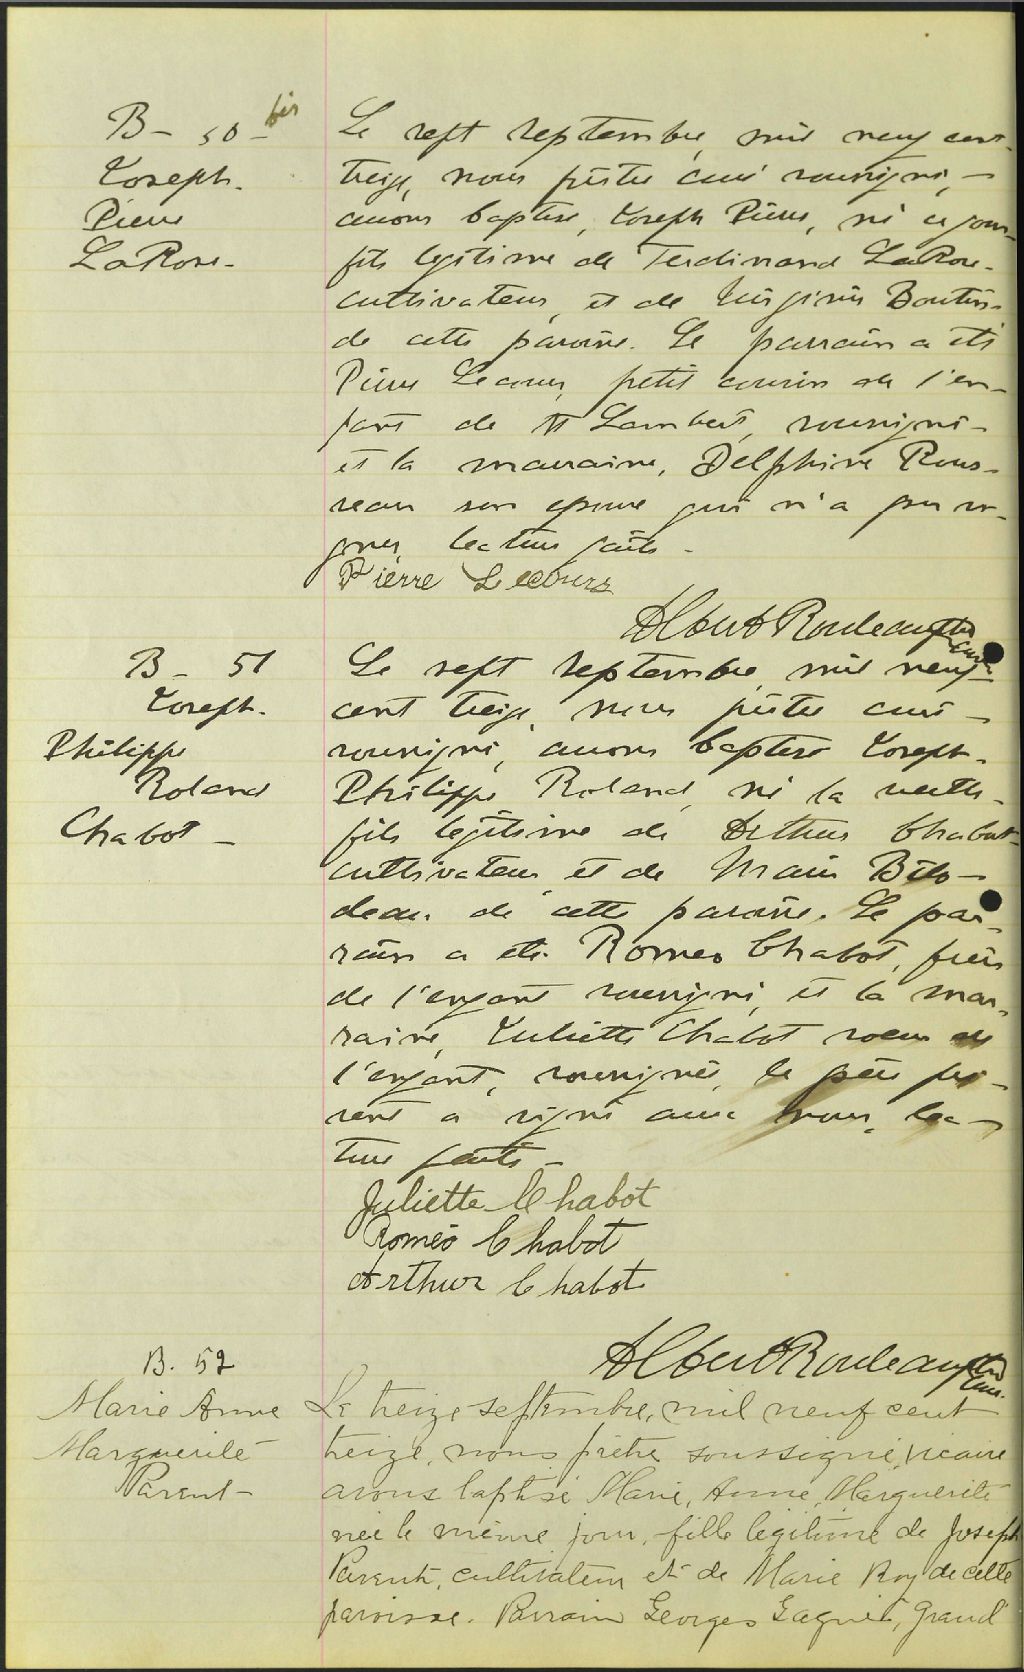 B- 50 - bis
Joseph.
Pierre
LaRose-
Le sept septembre, mil neuf cent
treize, nous prêtre curé soussigné, -
avons baptisé, Joseph Pierre, né ce jour
fils légitime de Ferdinand LaRose-
cultivateur, et de Virginie Boutin-
de cette paroisse. Le parrain a été
Pierre Lecours, petit cousin de l'en-
fant de St Lambert, soussigné -
et la marraine, Delphine Rous-
seau son épouse qui n'a pu si-
gner, lecture faite -
Pierre Lecours
Albert Rouleau ptre
curé
B - 51
Joseph.
Philippe
Roland
Chabot -
Le sept septembre, mil neuf
cent treize, nous prêtre curé -
soussigné, avons baptisé Joseph-
Philippe Roland, né la veille-
fils légitime de Arthur Chabot
cultivateur, et de Marie Bilo-
deau de cette paroisse. Le par-
rain a été Romeo Chabot, frère
de l'enfant soussigné, et la mar-
raine, Juliette Chabot soeur de
l'enfant, soussignée, le père pré-
sent a signé avec nous, lec-
ture faite -
Juliette Chabot
Roméo Chabot
Arthur Chabot
Albert Rouleau ptre
cur.
B. 52
Marie Anne
Marguerite
Parent -
Le treize septembre, mil neuf cent
treize, nous prêtre soussigné, vicaire
avons baptisé Marie, Anne, Marguerite
née le même jour, fille légitime de Joseph
Parent, cultivateur et de Marie Roy de cette
paroisse. Parrain Georges Gagné, grand